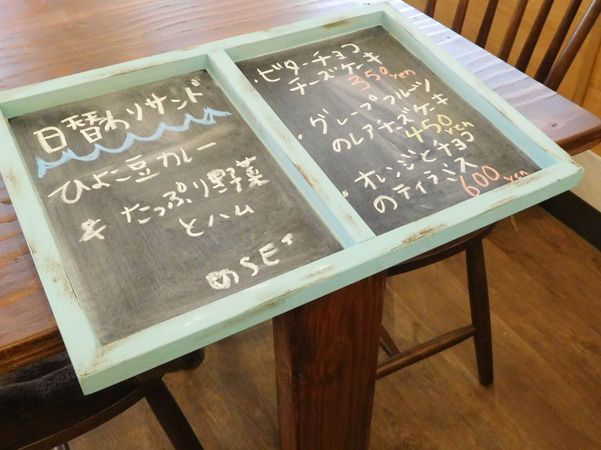 日替わりサンド
ひよこ豆カレー
& たっぷり野菜
とハム
のSET
・ビターチョコ
チーズケーキ
350yen
・グレープフルーツ
のレアチーズケーキ
450yen
・オレンジとチョコ
のティラミス
600yen